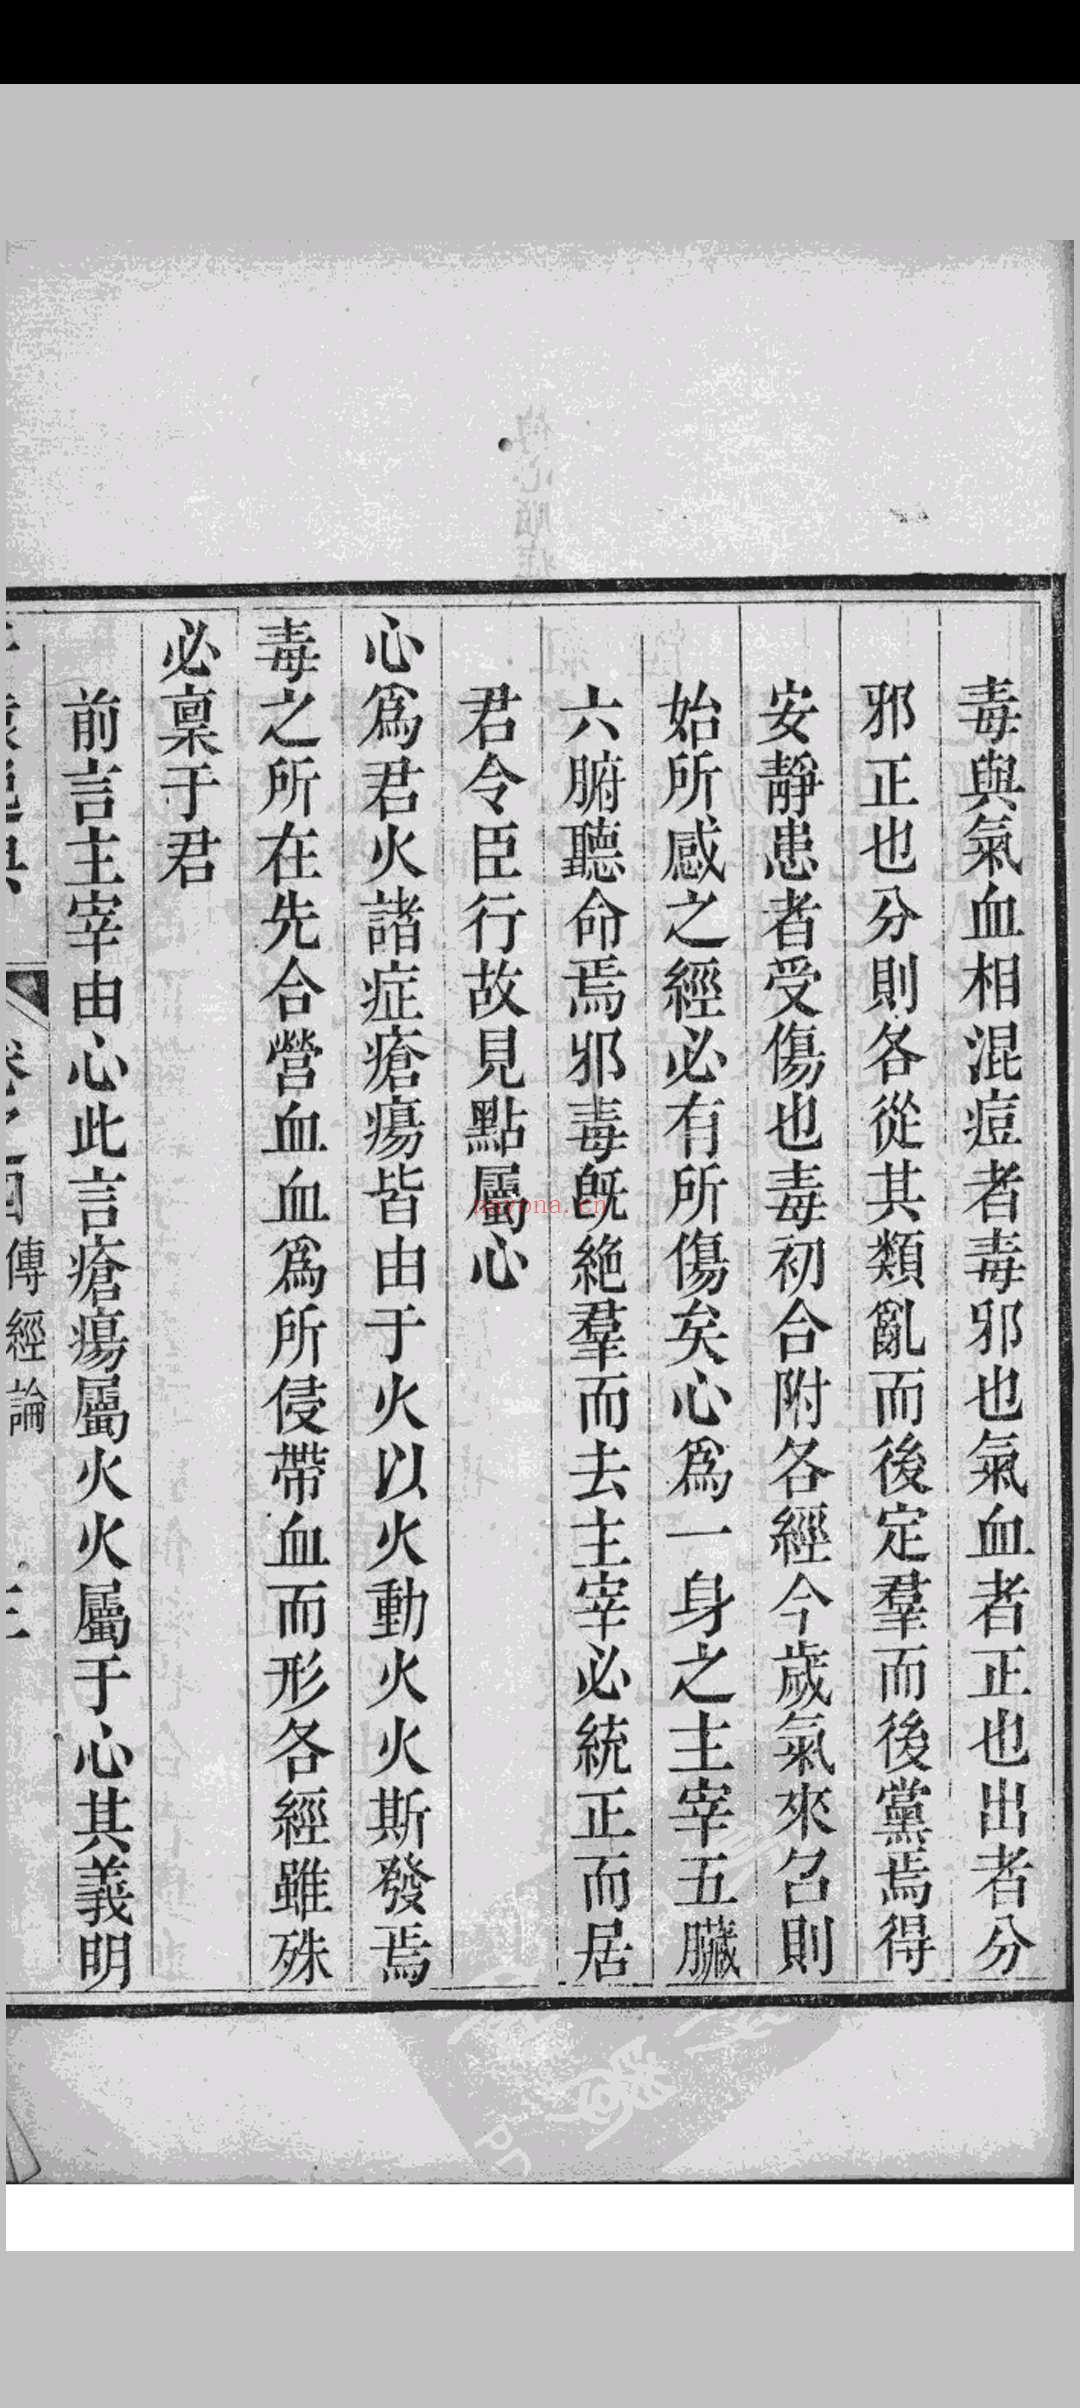 毒與氣血相混痘者毒邪也氣血者正也出者分
邪正也分則各從其類亂而後定羣而後黨焉得
安靜患者受傷也毒初合附各經今歲氣來召則
始所感之經必有所傷矣心爲一身之主宰五臟
六腑聽命焉邪毒旣絶羣而去主宰必統正而居
君令臣行故見點屬心
心爲君火諸症瘡瘍皆由于火以火動火火斯發焉
毒之所在先合營血血爲所侵帶血而形各經雖殊
必稟于君
前言主宰由心此言瘡瘍屬火火屬于心其義明
傳經論
nayona.cn